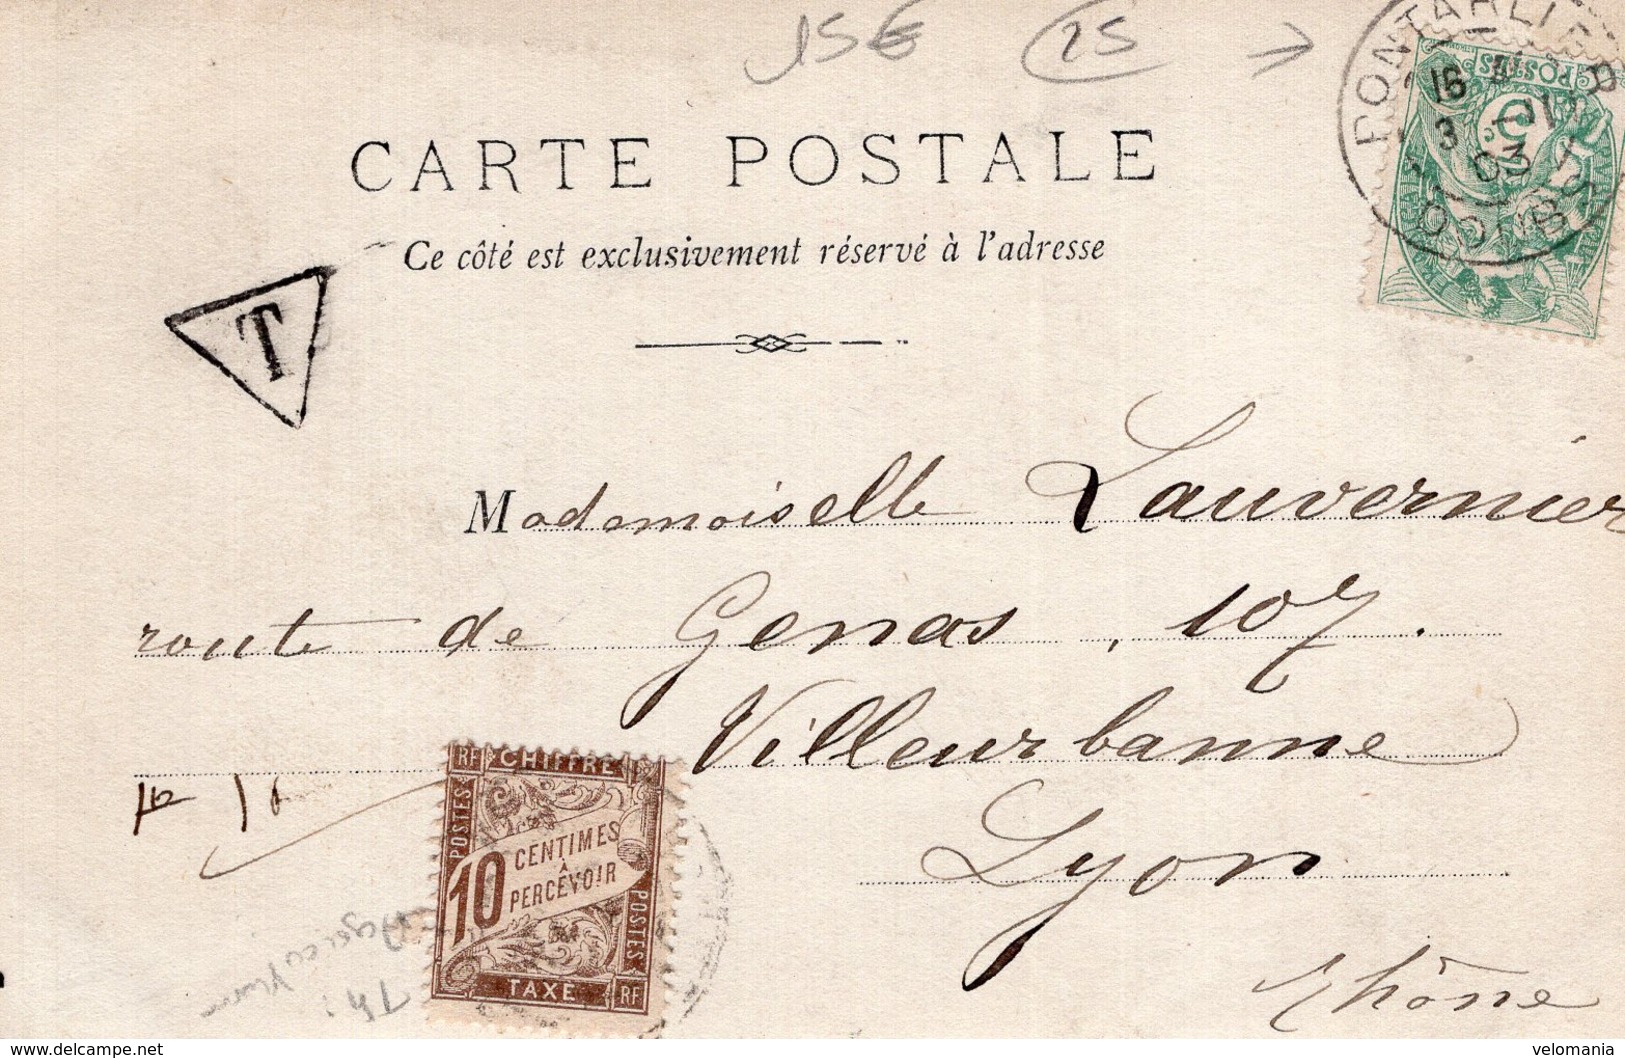 15€ 25
PONTARLIER
16
3
03
DOUBS
POSTES
5
CARTE POSTALE
Ce côté est exclusivement réservé à l'adresse
T
Mademoiselle Lauvernier
route de Genas, 107.
Villeurbanne
Lyon
Rhône
RF CHIFFRE
POSTES
10 CENTIMES
À
PERCEVOIR
POSTES
TAXE RF
Th :
delcampe.net
velomania